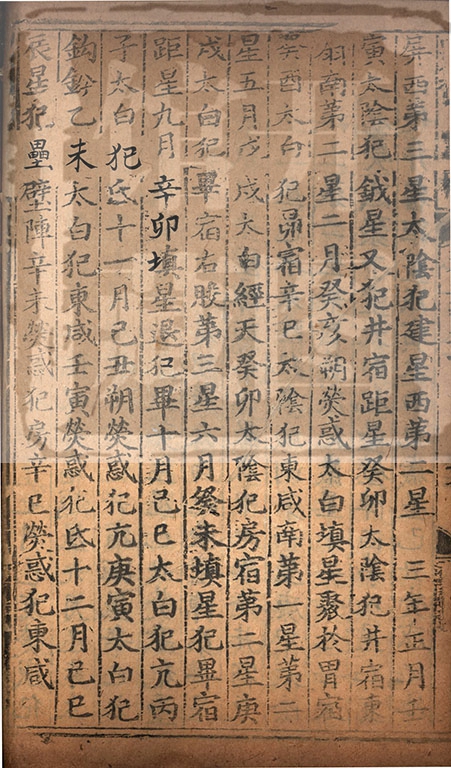 屏西第三星太陰犯建星西第二星 三年正月壬
寅太陰犯鉞星又犯井宿距星癸卯太陰犯井宿東
扇南第二星二月癸亥朔熒惑太白填星聚於胃宿
癸酉太白犯昴宿辛巳太陰犯東咸南第一星第二
星五月戊戌太白經天癸卯太陰犯房宿第二星庚
戌太白犯畢宿右股第三星六月癸未填星犯畢宿
距星九月辛卯填星退犯畢十月己巳太白犯亢丙
子太白犯氐十一月己丑朔熒惑犯亢庚寅太白犯
鈎鈐乙未太白犯東咸壬寅熒惑犯氐十二月己巳
辰星犯壘壁陣辛未熒惑犯房辛巳熒惑犯東咸